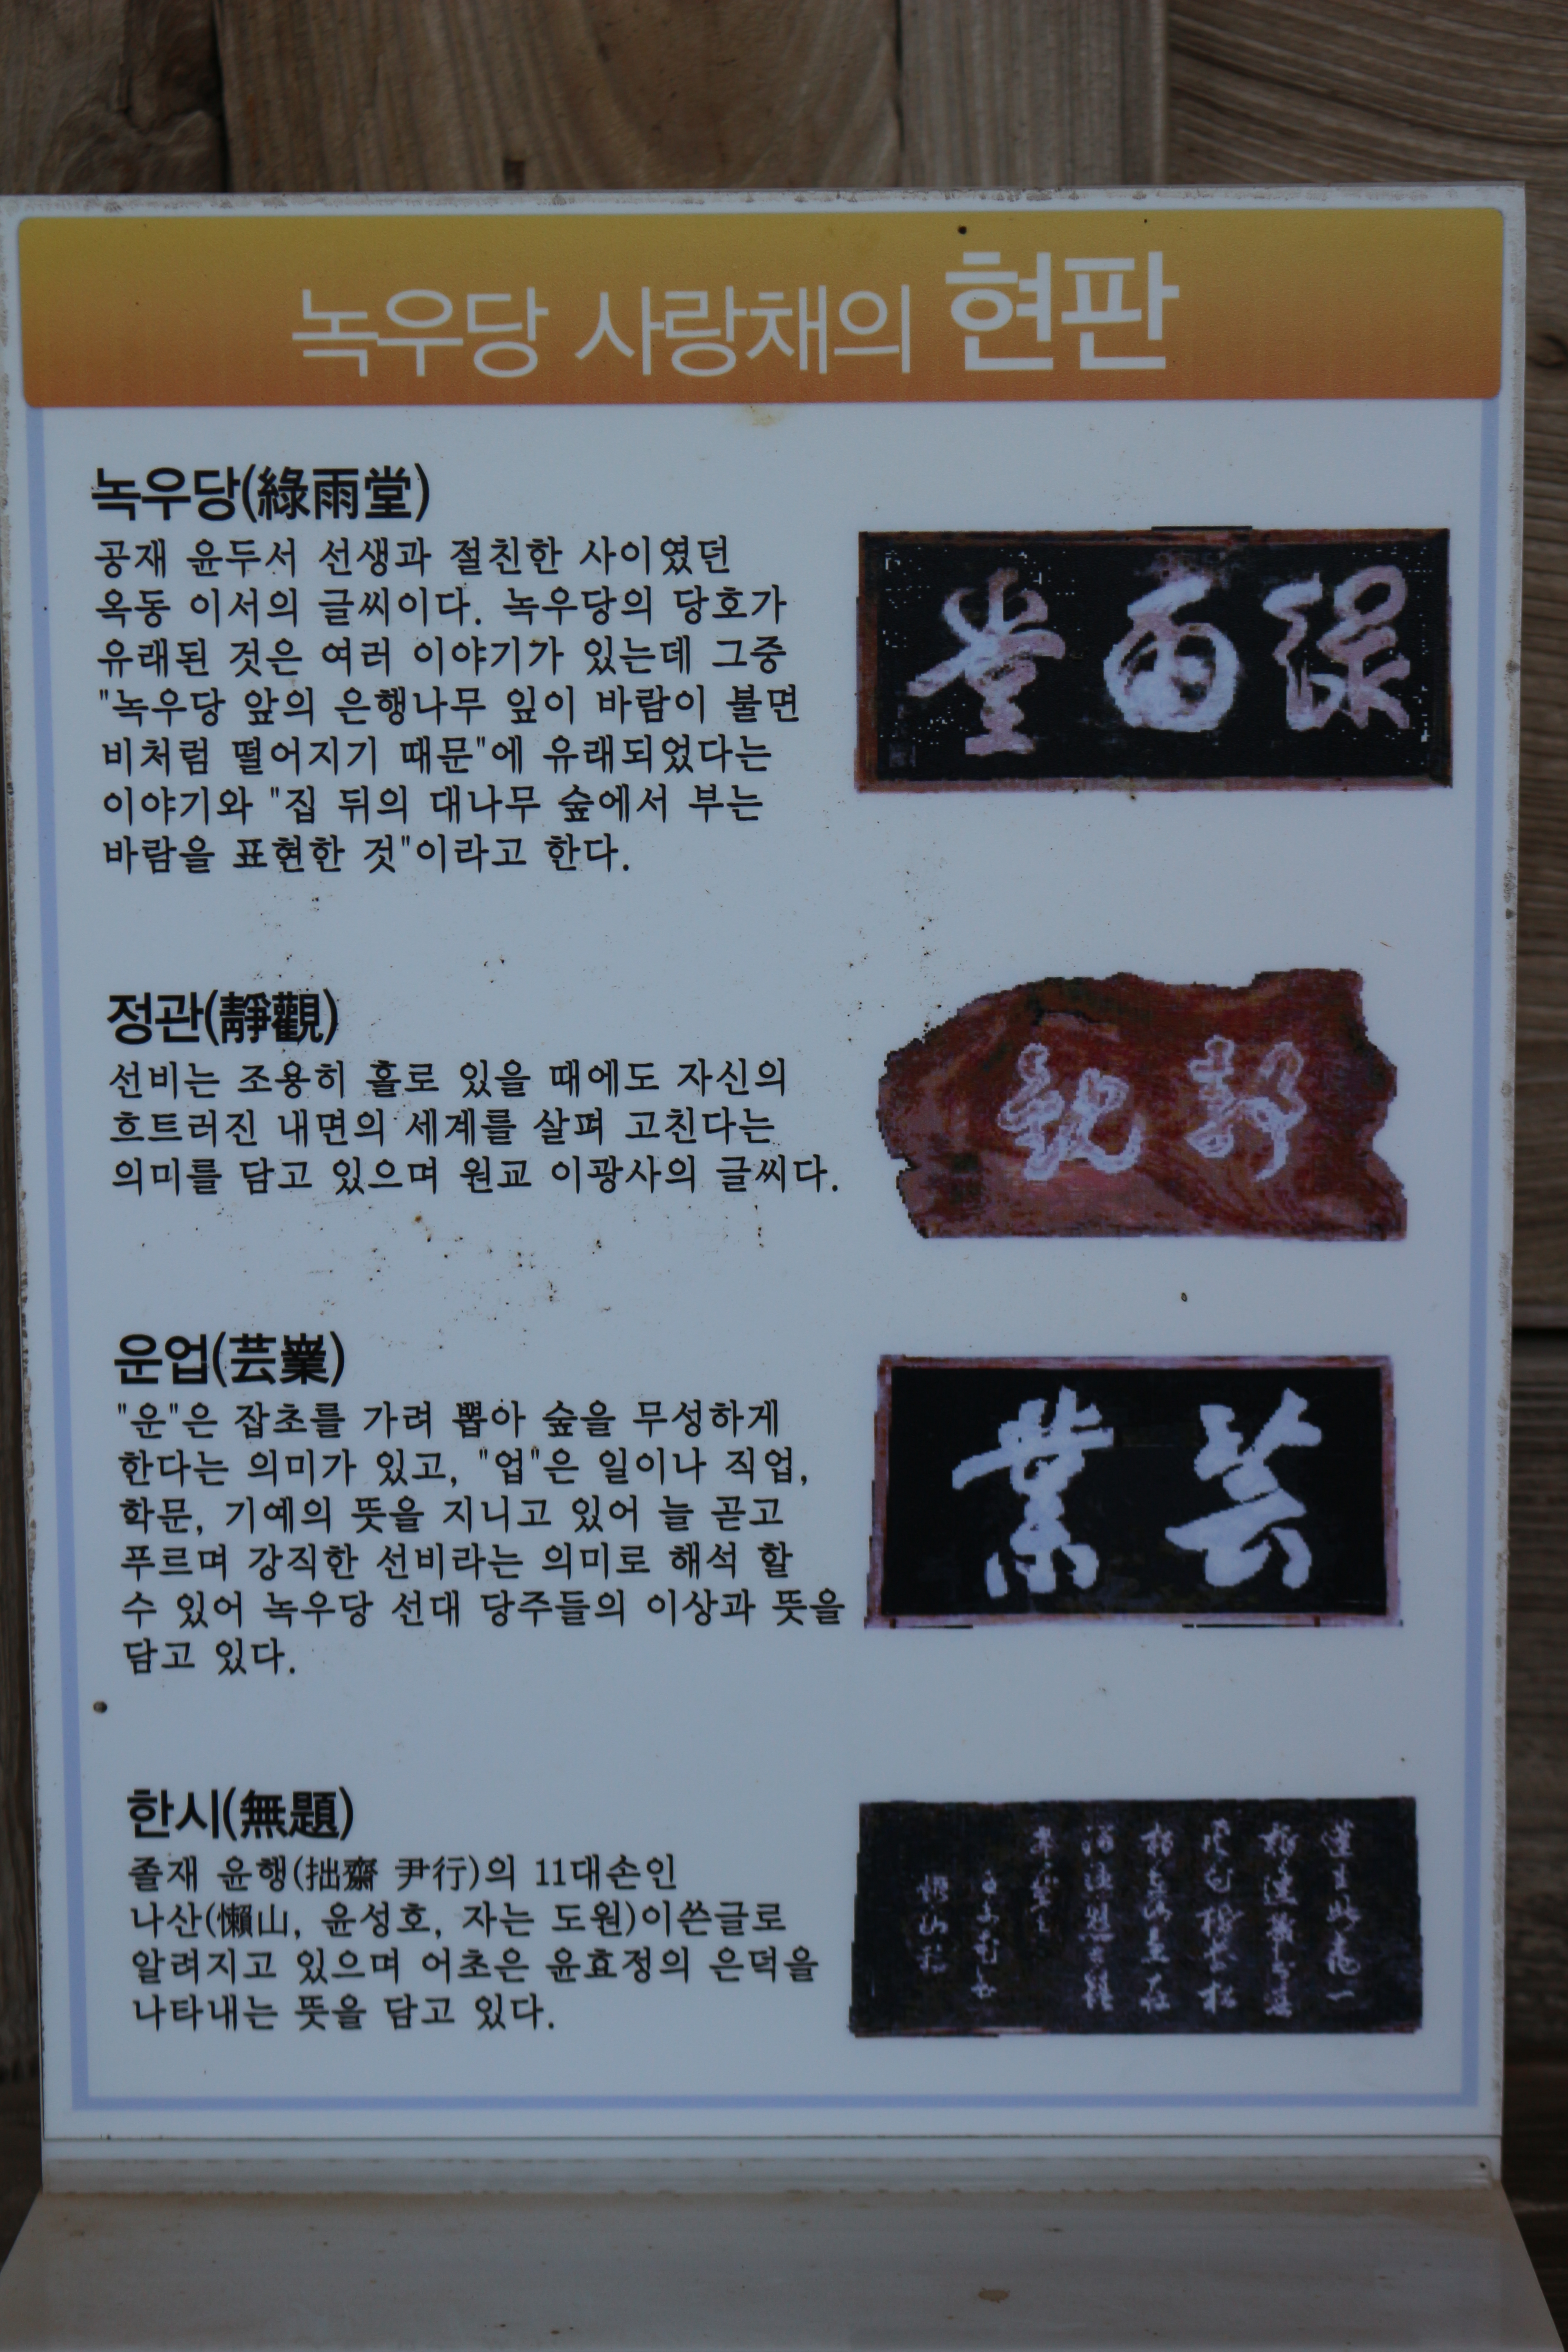 녹우당 사랑채의 현판
녹우당(綠雨堂)
공재 윤두서 선생과 절친한 사이였던
옥동 이서의 글씨이다. 녹우당의 당호가
유래된 것은 여러 이야기가 있는데 그중
"녹우당 앞의 은행나무 잎이 바람이 불면
비처럼 떨어지기 때문"에 유래되었다는
이야기와 "집 뒤의 대나무 숲에서 부는
바람을 표현한 것"이라고 한다.
堂雨綠
정관(靜觀)
선비는 조용히 홀로 있을 때에도 자신의
흐트러진 내면의 세계를 살펴 고친다는
의미를 담고 있으며 원교 이광사의 글씨다.
觀靜
운업(芸業)
"운"은 잡초를 가려 뽑아 숲을 무성하게
한다는 의미가 있고, "업"은 일이나 직업,
학문, 기예의 뜻을 지니고 있어 늘 곧고
푸르며 강직한 선비라는 의미로 해석 할
수 있어 녹우당 선대 당주들의 이상과 뜻을
담고 있다.
業芸
한시(無題)
졸재 윤행(拙齋 尹行)의 11대손인
나산(懶山, 윤성호, 자는 도원)이쓴글로
알려지고 있으며 어초은 윤효정의 은덕을
나타내는 뜻을 담고 있다.